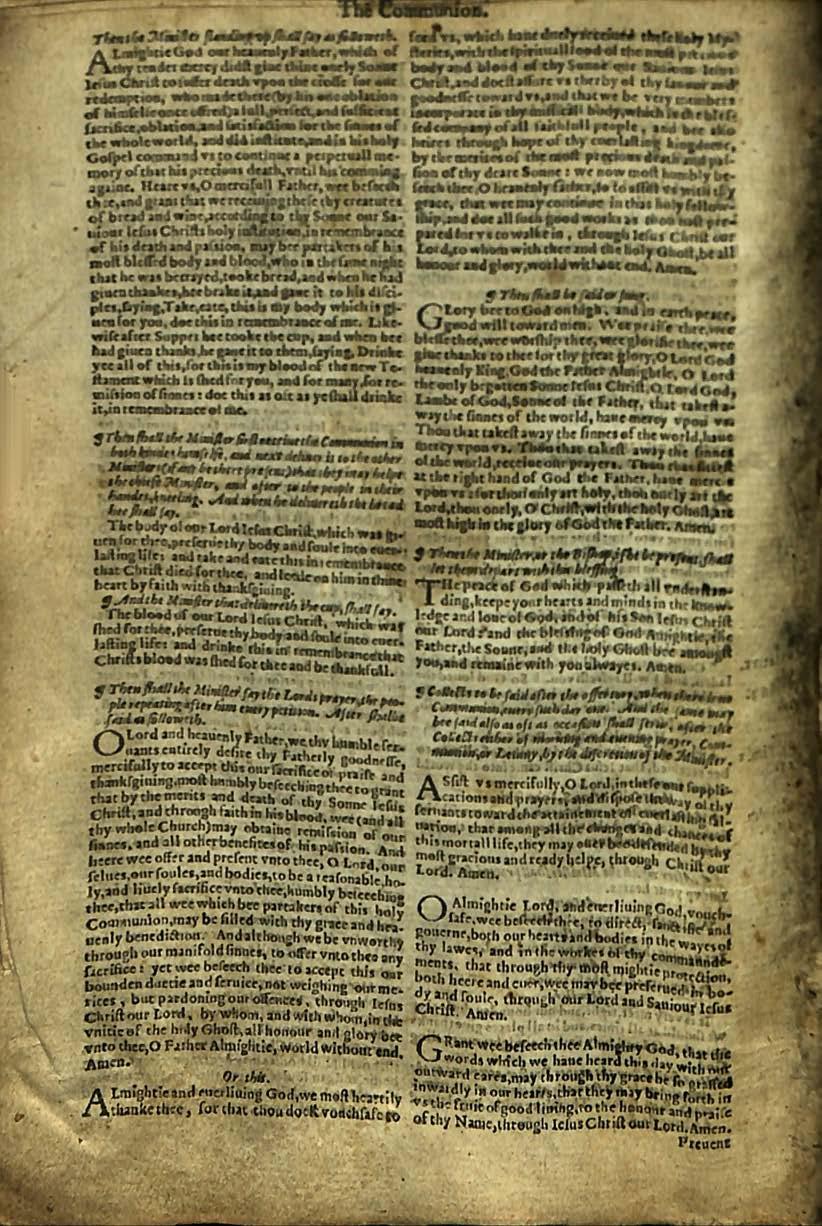 The Communion.
Then the Minister standing vp shall say as followeth.
ALmightie God our heavenly Father, which of
thy tender mercy didst giue thine onely Sonne
Iesus Christ to suffer death vpon the crosse for our
redemption, who made there (by his one oblation
of himselfe once offered) a full, perfect, and sufficient
sacrifice, oblation, and satisfaction for the sinnes of
the whole world, and did institute, and in his holy
Gospel command vs to continue a perpetuall me-
mory of that his precious death, vntil his comming
againe. Heare vs, O mercifull Father, wee beseech
thee, and grant that we receiuing these thy creatures
of bread and wine, according to thy Sonne our Sa-
uiour Iesus Christs holy institution, in remembrance
of his death and passion, may bee partakers of his
most blessed body and blood, who in the same night
that he was betrayed, tooke bread, and when he had
giuen thankes, hee brake it, and gaue it to his disci-
ples, saying, Take, eate, this is my body which is gi-
uen for you, doe this in remembrance of me. Like-
wise after Supper hee tooke the cup, and when hee
had giuen thanks, he gaue it to them, saying, Drinke
yee all of this, for this is my blood of the new Te-
stament which is shed for you, and for many, for re-
mission of sinnes: doe this as oft as ye shall drinke
it, in remembrance of me.
¶ Then shall the Minister first receiue the Communion in
both kindes himselfe, and next deliuer it to the other
Ministers (if any be there present) that they may helpe
the chiefe Minister, and after to the people in their
handes, kneeling. And when he deliuereth the bread
hee shall say.
The body of our Lord Iesus Christ, which was gi-
uen for thee, preserue thy body and soule into euer-
lasting life: and take and eate this in remembrance
that Christ died for thee, and feede on him in thine
heart by faith with thanksgiuing.
¶ And the Minister that deliuereth the cup, shall say.
The blood of our Lord Iesus Christ, which was
shed for thee, preserue thy body and soule into euer-
lasting life: and drinke this in remembrance that
Christs blood was shed for thee and be thankfull.
¶ Then shall the Minister say the Lords prayer, the peo-
ple repeating after him euery petition. After shalbe
said as followeth.
O Lord and heauenly Father, we thy humble ser-
uants entirely desire thy Fatherly goodnesse,
mercifully to accept this our sacrifice of praise and
thanksgiuing, most humbly beseeching thee to grant
that by the merits and death of thy Sonne Iesus
Christ, and through faith in his blood, wee (and all
thy whole Church) may obtaine remission of our
sinnes, and all other benefites of his passion. And
heere wee offer and present vnto thee, O Lord, our
selues, our soules, and bodies, to be a reasonable, ho-
ly, and liuely sacrifice vnto thee, humbly beseeching
thee, that all wee which bee partakers of this holy
Communion, may be filled with thy grace and hea-
uenly benediction. And although we be vnworthy
through our manifold sinnes, to offer vnto thee any
sacrifice: yet wee beseech thee to accept this our
bounden duetie and seruice, not weighing our me-
rites, but pardoning our offences, through Iesus
Christ our Lord, by whom, and with whom, in the
vnitie of the holy Ghost, all honour and glory bee
vnto thee, O Father Almightie, world without end.
Amen.
Or this.
ALmightie and euerliuing God, we most heartily
thanke thee, for that thou dost vouchsafe to
feed vs, which haue duely receiued these holy My-
steries, with the spirituall food of the most precious
body and blood of thy Sonne our Sauiour Iesus
Christ, and doest assure vs therby of thy fauour and
goodnesse toward vs, and that we be very members
incorporate in thy misticall body, which is the bles-
sed company of all faithfull people, and bee also
heires through hope of thy euerlasting kingdome,
by the merites of the most precious death and pas-
sion of thy deare Sonne: we now most humbly be-
seech thee, O heauenly father, so to assist vs with thy
grace, that wee may continue in that holy fellow-
ship, and doe all such good works as thou hast pre-
pared for vs to walke in, through Iesus Christ our
Lord, to whom with thee and the holy Ghost, be all
honour and glory, world without end. Amen.
¶ Then shall be said or sung.
GLory bee to God on high, and in earth peace,
good will toward men. Wee praise thee, wee
blesse thee, wee worship thee, wee glorifie thee, wee
giue thanks to thee for thy great glory, O Lord God
heauenly King, God the Father Almightie, O Lord
the only begotten Sonne Iesus Christ, O Lord God,
Lambe of God, Sonne of the Father, that takest a-
way the sinnes of the world, haue mercy vpon vs:
Thou that takest away the sinnes of the world, haue
mercy vpon vs. Thou that takest away the sinnes
of the world, receiue our prayers. Thou that sittest
at the right hand of God the Father, haue mercie
vpon vs: for thou only art holy, thou onely art the
Lord, thou onely, O Christ, with the holy Ghost, art
most high in the glory of God the Father. Amen.
¶ Then the Minister, or the Bishop, if he be present, shall
let them depart with this blessing.
THe peace of God which passeth all vnderstan-
ding, keepe your hearts and minds in the know-
ledge and loue of God, and of his Son Iesus Christ
our Lord: and the blessing of God Almightie, the
Father, the Sonne, and the holy Ghost bee amongst
you, and remaine with you alwayes. Amen.
¶ Collects to be said after the offertory, when there is no
Communion, euery such day one. And the same may
bee said also as oft as occasion shall serue, after the
Collects either of morning and euening prayer, Com-
munion, or Letany, by the discretion of the Minister.
ASsist vs mercifully, O Lord, in these our suppli-
cations and prayers, and dispose the way of thy
seruants toward the attainement of euerlasting sal-
uation, that among all the changes and chances of
this mortall life, they may euer bee defended by thy
most gracious and ready helpe, through Christ our
Lord. Amen.
O Almightie Lord, and euerliuing God, vouch-
safe, wee beseech thee, to direct, sanctifie and
gouerne, both our hearts and bodies in the wayes of
thy lawes, and in the workes of thy commande-
ments, that through thy most mightie protection,
both heere and euer, wee may bee preserued in bo-
dy and soule, through our Lord and Sauiour Iesus
Christ. Amen.
GRant wee beseech thee Almighty God, that the
words which we haue heard this day with our
outward eares, may through thy grace be so graffed
inwardly in our hearts, that they may bring forth in
vs the fruit of good liuing, to the honour and praise
of thy Name, through Iesus Christ our Lord. Amen.
Preuent